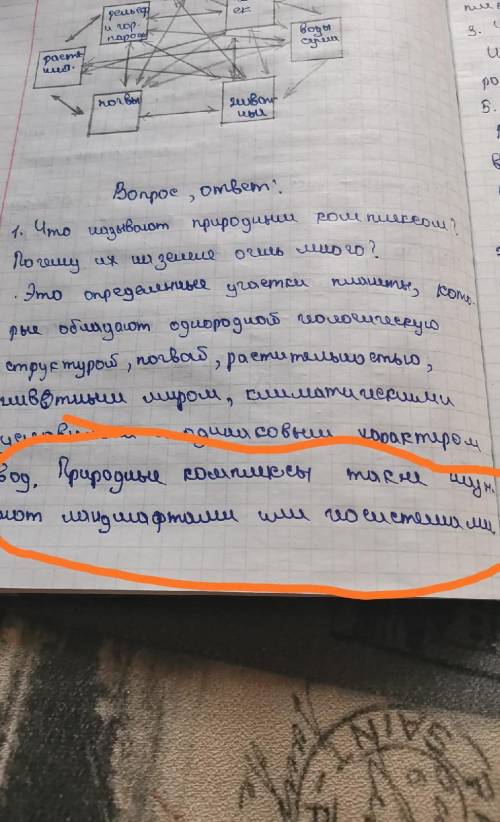 рельеф
и гор.
пароды
ек
воды
суши
раст-
почвы
живот-
ные
3.
5.
Вопрос, ответ:
1. Что называют природным комплексом?
Почему их на земле очень много?
. Это определенные участки планеты, кото-
рые обладают однородной геологическую
структурой, почвой, растительностью,
животным миром, климатическими
одинаковым характером
вод. Природные комплексы также
ландшафтами или геосистемами
SAINT